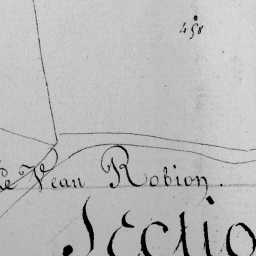 458
Le Veau Robion.
Sectio